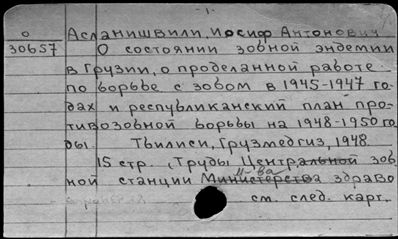 - 1 -
О Асланишвили, Иосиф Антонович
30657 О состоянии зобной эндемии
в Грузии, о проделанной работе
по борьбе с зобом в 1945-1947 го-
дах и республиканский план про-
тивозобной борьбы на 1948-1950 го
ды. Тбилиси, Грузмедгиз, 1948
15 стр. (Труды Центральной зоб
ной станции М-ва Министерства здраво
см. след. карт.